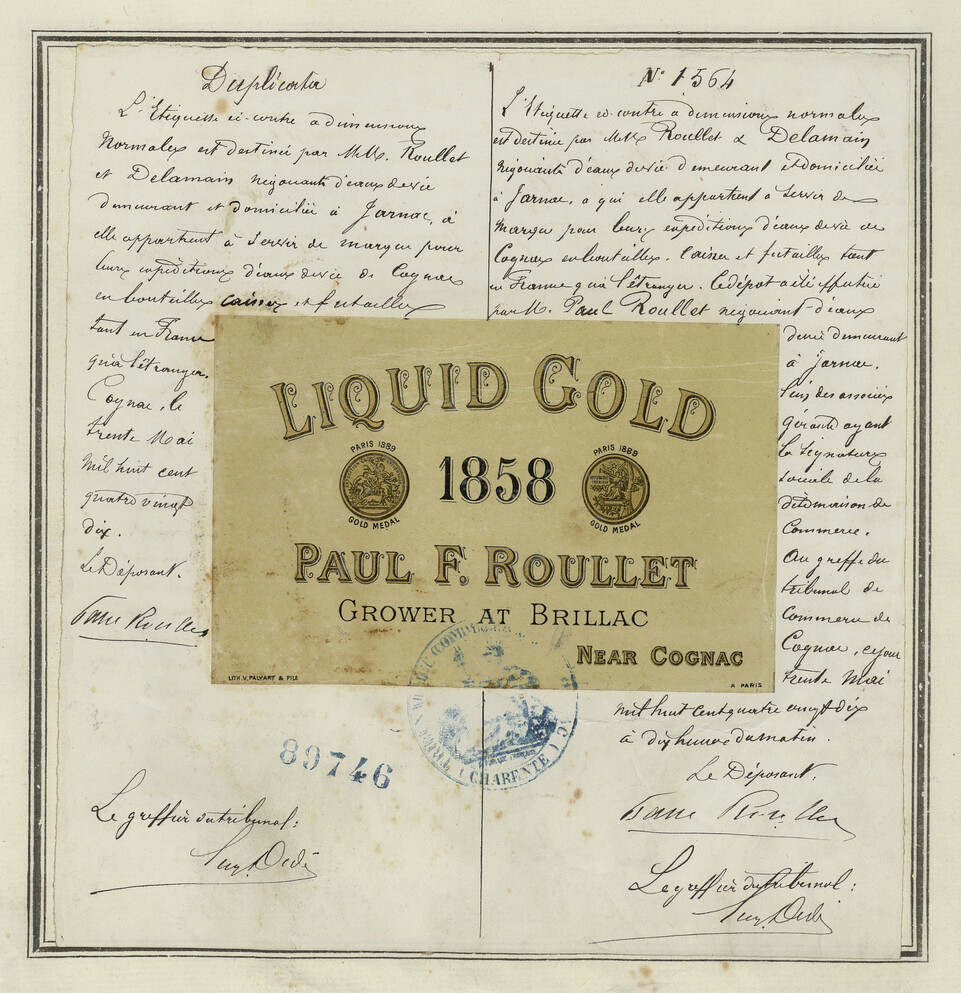 Duplicata
L'Etiquette ci-contre a dimensions
Normales est destinée par M.M. Roullet
et Delamain négociants d'eaux de vie
demeurant et domiciliée à Jarnac, à
elle appartient à servir de marque pour
leurs expéditions d'eaux de vie de Cognac
en bouteilles caisses et futailles
tant en France
qu'à l'étranger.
Cognac, le
trente Mai
Mil huit cent
quatre vingt
dix.
Le Déposant.
Le greffier du tribunal:
N° 1564
L'Etiquette ci-contre a dimensions normales
est destinée par M.M. Roullet & Delamain
négociants d'eaux de vie demeurant et domiciliée
à Jarnac, a qui elle appartient a servir de
marque pour leurs expéditions d'eaux de vie de
Cognac en bouteilles. Caisses et futailles tant
en France qu'à l'étranger. Le dépôt a été effectué
par M. Paul Roullet négociant d'eaux
de vie demeurant
à Jarnac.
l'un des associés
gérants ayant
la signature
sociale de la
dite maison de
Commerce.
Au greffe du
tribunal de
Commerce de
Cognac, ce jour
trente Mai
mil huit cent quatre vingt dix
à dix heures du matin.
Le Déposant.
Le greffier du tribunal:
LIQUID GOLD
PARIS 1889
GOLD MEDAL
1858
PARIS 1889
GOLD MEDAL
PAUL F. ROULLET
GROWER AT BRILLAC
NEAR COGNAC
LITH. V. PALYART & FILS
A PARIS
89746
CHARENTE